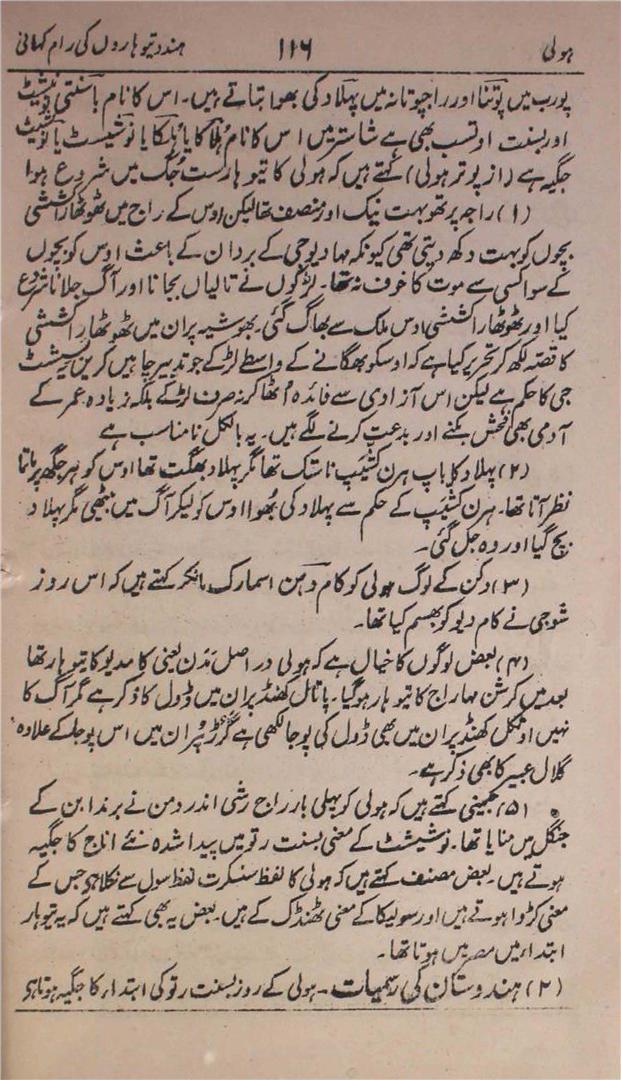 ہولی ۱۱۶ ہندو تیوہاروں کی رام کہانی
پورب میں پوتنا اور راجپوتانہ میں پہلاد کی بھوا بتاتے ہیں۔ اس کا نام باسنتی
اور بسنت اوتسب بھی ہے شاستر میں اس کا نام ہلاکا یا ہلکا یا نوشیسٹ یا
جگیہ ہے (از پوتر ہولی) کہتے ہیں کہ ہولی کا تیوہار ست جُگ میں شروع ہوا
(۱) راجہ پرتھو بہت نیک اور منصف تھا لیکن اوس کے راج میں ٹھوٹھا راکششی
بچوں کو بہت دکھ دیتی تھی کیونکہ مہادیوجی کے بردان کے باعث اوس کو بچوں
کے سوا کسی سے موت کا خوف نہ تھا۔ لڑکوں نے تالیاں بجانا اور آگ جلانا شروع
کیا اور ٹھوٹھا راکششی اوس ملک سے بھاگ گئی۔ بھوشیہ پران میں ٹھوٹھا راکششی
کا قصہ لکھ کر تحریر کیا ہے کہ اوسکو بھگانے کے واسطے لڑکے جو تدبیر چاہیں کریں
جی کا حکم ہے لیکن اس آزادی سے فائدہ اُٹھا کر نہ صرف لڑکے بلکہ زیادہ عمر کے
آدمی بھی فحش بکنے اور بدعت کرنے لگے ہیں۔ یہ بالکل نامناسب ہے
(۲) پہلاد کا باپ ہرن کشیَپ ناستک تھا مگر پہلاد بھگت تھا اوس کو ہر جگہ پرماتما
نظر آتا تھا۔ ہرن کشیَپ کے حکم سے پہلاد کی بُھوا اوس کو لیکر آگ میں بیٹھی مگر پہلاد
بچ گیا اور وہ جل گئی۔
(۳) دکن کے لوگ ہولی کو کام دہن اسمارک مانکر کہتے ہیں کہ اس روز
شوجی نے کام دیو کو بھسم کیا تھا۔
(۴) بعض لوگوں کا خیال ہے کہ ہولی در اصل مَدَن یعنی کامدیو کا تیوہار تھا
بعد میں کرشن مہاراج کا تیوہار ہو گیا۔ پاتال کھنڈ پران میں ڈول کا ذکر ہے مگر آگ کا
نہیں اوتکل کھنڈ پران میں بھی ڈول کی پوجا لکھی ہے گرڑ پُران میں اس پوجا کے علاوہ
گلال عبیر کا بھی ذکر ہے۔
(۵) جیمینی کہتے ہیں کہ ہولی کو پہلی بار راج رشی اندر دمن نے برندابن کے
جنگل میں منایا تھا۔ نوشیشٹ کے معنی بسنت رتو میں پیدا شدہ نئے اناج کا جگیہ
ہوتے ہیں۔ بعض مصنف کہتے ہیں کہ ہولی کا لفظ سنسکرت لفظ سول سے نکلا ہی جس کے
معنی کڑوا ہوتے ہیں اور سولیکا کے معنی ٹھنڈک کے ہیں۔ بعض یہ بھی کہتے ہیں کہ یہ تیوہار
ابتداء میں مصر میں ہوتا تھا۔
(۲) ہندوستان کی رسمیات۔ ہولی کے روز بسنت رتو کی ابتداء کا جگیہ ہوتا ہی